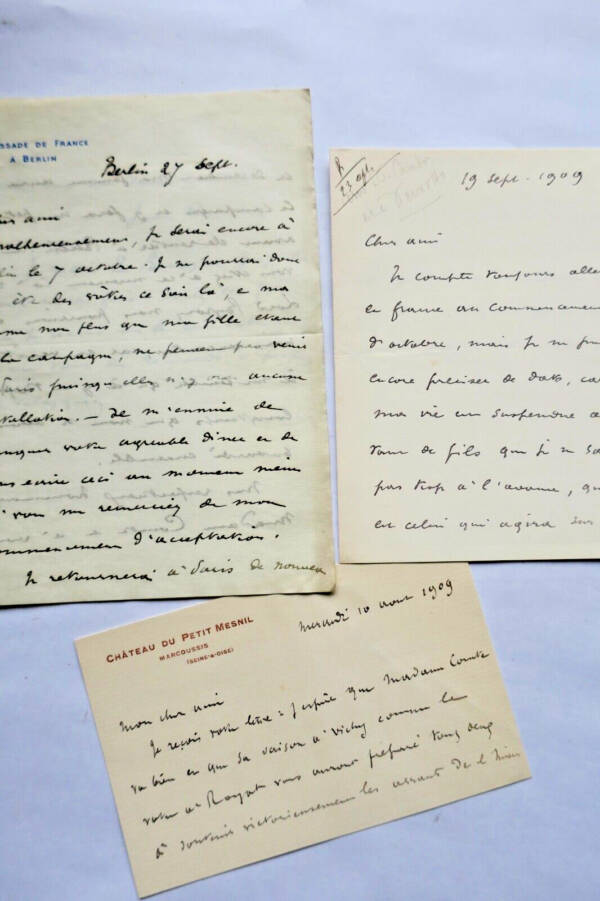 SSADE DE FRANCE
A BERLIN
Berlin 27 Sept.
her ami
malheureusement, Je serai encore à
le 7 octobre. Je ne pourrai donc
être des vôtres ce soir là, e ma
non plus que ma fille étant
la campagne, ne peuvent venir
Paris puisqu'elles n'y ont aucune
stallation. — Je m'ennuie de
manquer votre agréable dîner et de
vous écrire ceci au moment même
où vous me remerciez de mon
commencement d'acceptation.
Je retournerai à Paris de nouveau
R
23 sept.
19 sept. 1909
Cher ami
Je compte toujours alle
en france au commencemen
d'octobre, mais je ne pui
encore préciser de date, ca
ma vie est suspendue à
tant de fils que je ne sa
pas trop à l'avance, qu
est celui qui agira sur
CHÂTEAU DU PETIT MESNIL
MARCOUSSIS
(SEINE-&-OISE)
Mercredi 10 aout 1909
Mon cher ami
Je reçois votre lettre : J'espère que Madame Comte
va bien et que sa saison à Vichy comme la
votre à Royat vous auront préparé tous deux
à soutenir victorieusement les assauts de l'hiver